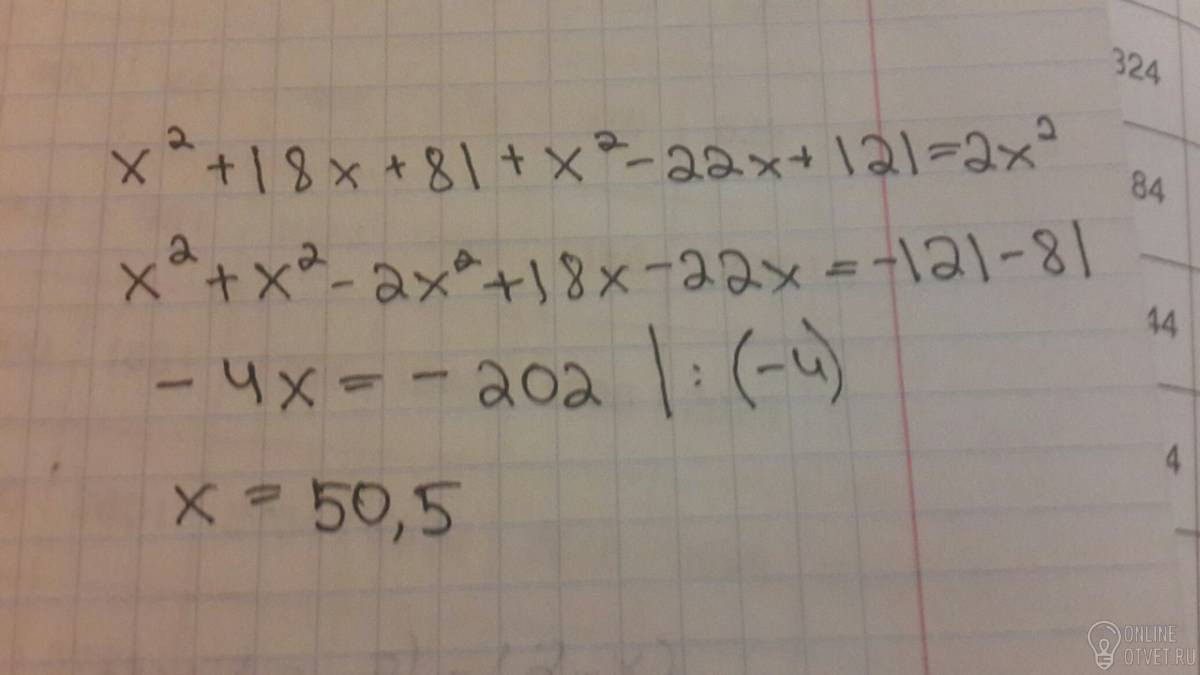 x² + 18x + 81 + x² - 22x + 121 = 2x²
x² + x² - 2x² + 18x - 22x = -121 - 81
- 4x = - 202 | : (-4)
x = 50,5
324
84
14
4
ONLINE
OTVET.RU